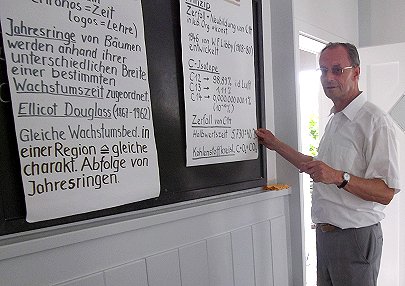 Chronos = Zeit
logos = Lehre)
Jahresringe von Bäumen
werden anhand ihrer
unterschiedlichen Breite
einer bestimmten
Wachstumszeit zugeordnet.
Ellicot Douglass (1867-1962)
Gleiche Wachstumsbed. in
einer Region ≙ gleiche
charakt. Abfolge von
Jahresringen.
Prinzip
Zerfall - Neubildung von C14
1946 von W.F. Libby
entwickelt
C-Isotope
C12 → 98,89% i.d. Luft
C13 → 1,11%
C14 →
Zerfall von C14
Halbwertszeit 5730±40
Kohlenstoffkreisl.